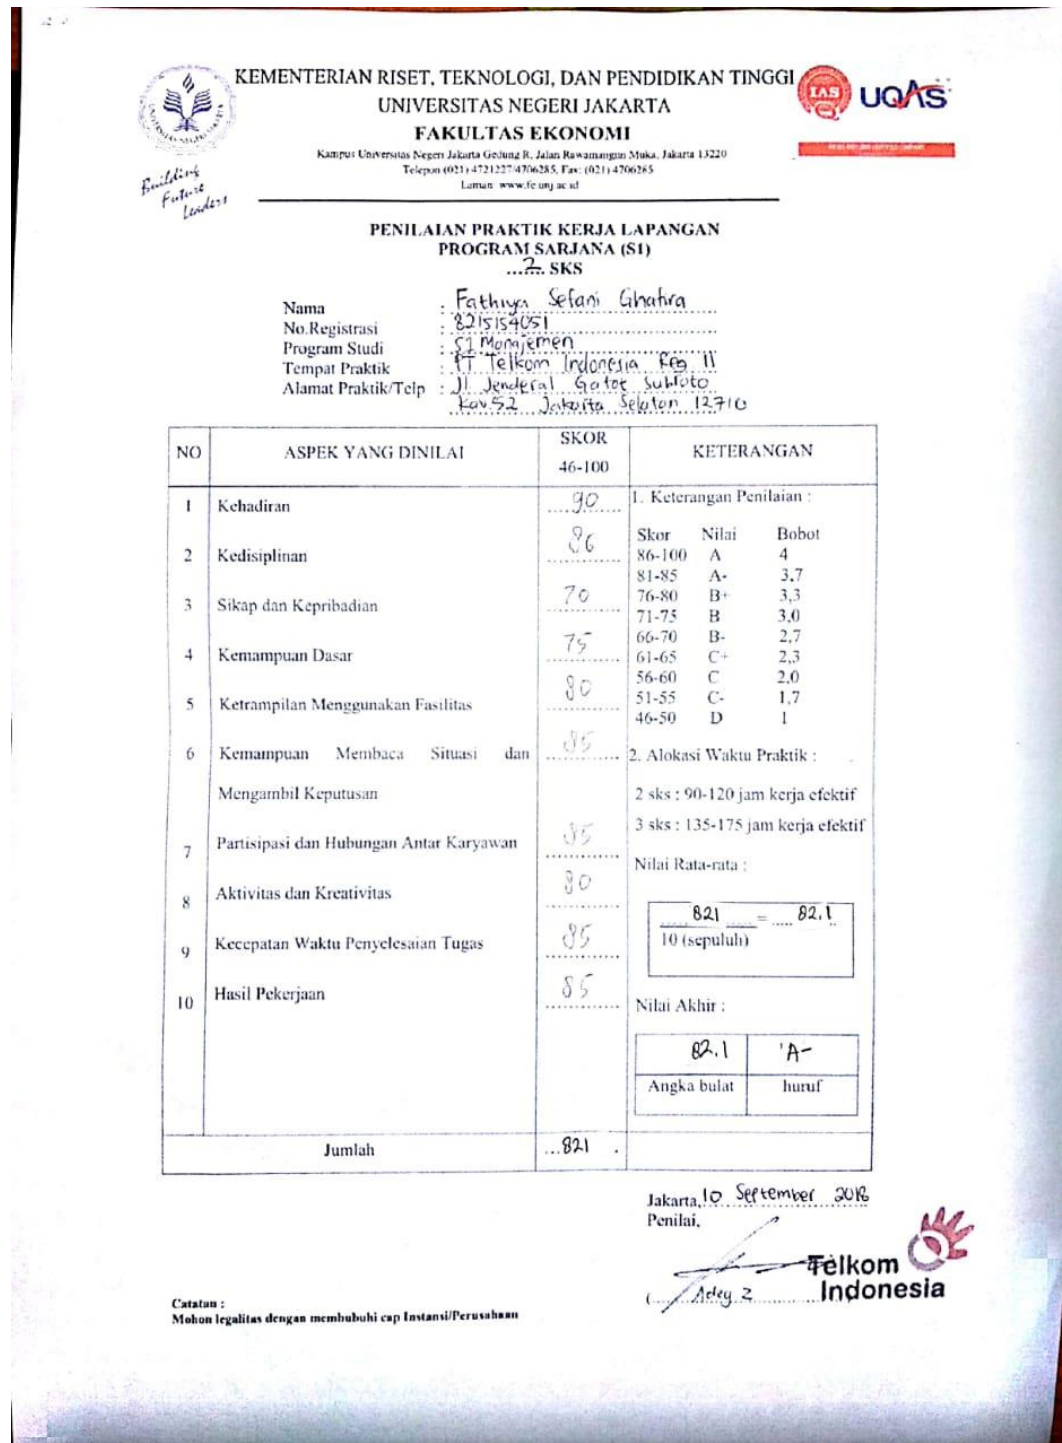 KEMENTERIAN RISET, TEKNOLOGI, DAN PENDIDIKAN TINGGI
UNIVERSITAS NEGERI JAKARTA
FAKULTAS EKONOMI
Kampus Universitas Negeri Jakarta Gedung R, Jalan Rawamangun Muka, Jakarta 13220
Telepon (021) 4721227/4706285, Fax: (021) 4706285
Laman: www.fe.unj.ac.id
Building
Future
Leaders
IAS
UQAS
PENILAIAN PRAKTIK KERJA LAPANGAN
PROGRAM SARJANA (S1)
...2... SKS
Nama : Fathiya Sefani Ghafira
No.Registrasi : 8215154051
Program Studi : S1 Manajemen
Tempat Praktik : PT Telkom Indonesia Reg II
Alamat Praktik/Telp : Jl Jenderal Gatot Subroto
Kav.52 Jakarta Selatan 12710
NO ASPEK YANG DINILAI SKOR 46-100 KETERANGAN
1 Kehadiran 90
2 Kedisiplinan 86
3 Sikap dan Kepribadian 70
4 Kemampuan Dasar 75
5 Ketrampilan Menggunakan Fasilitas 80
6 Kemampuan Membaca Situasi dan 85
Mengambil Keputusan
7 Partisipasi dan Hubungan Antar Karyawan 85
8 Aktivitas dan Kreativitas 80
9 Kecepatan Waktu Penyelesaian Tugas 85
10 Hasil Pekerjaan 85
1. Keterangan Penilaian :
Skor Nilai Bobot
86-100 A 4
81-85 A- 3.7
76-80 B+ 3,3
71-75 B 3,0
66-70 B- 2,7
61-65 C+ 2,3
56-60 C 2,0
51-55 C- 1,7
46-50 D 1
2. Alokasi Waktu Praktik :
2 sks : 90-120 jam kerja efektif
3 sks : 135-175 jam kerja efektif
Nilai Rata-rata :
821 = 82,1
10 (sepuluh)
Nilai Akhir :
82.1 A-
Angka bulat huruf
Jumlah ...821 .
Jakarta, 10 September 2018
Penilai,
Telkom
Indonesia
( Adey Z
Catatan :
Mohon legalitas dengan membubuhi cap Instansi/Perusahaan